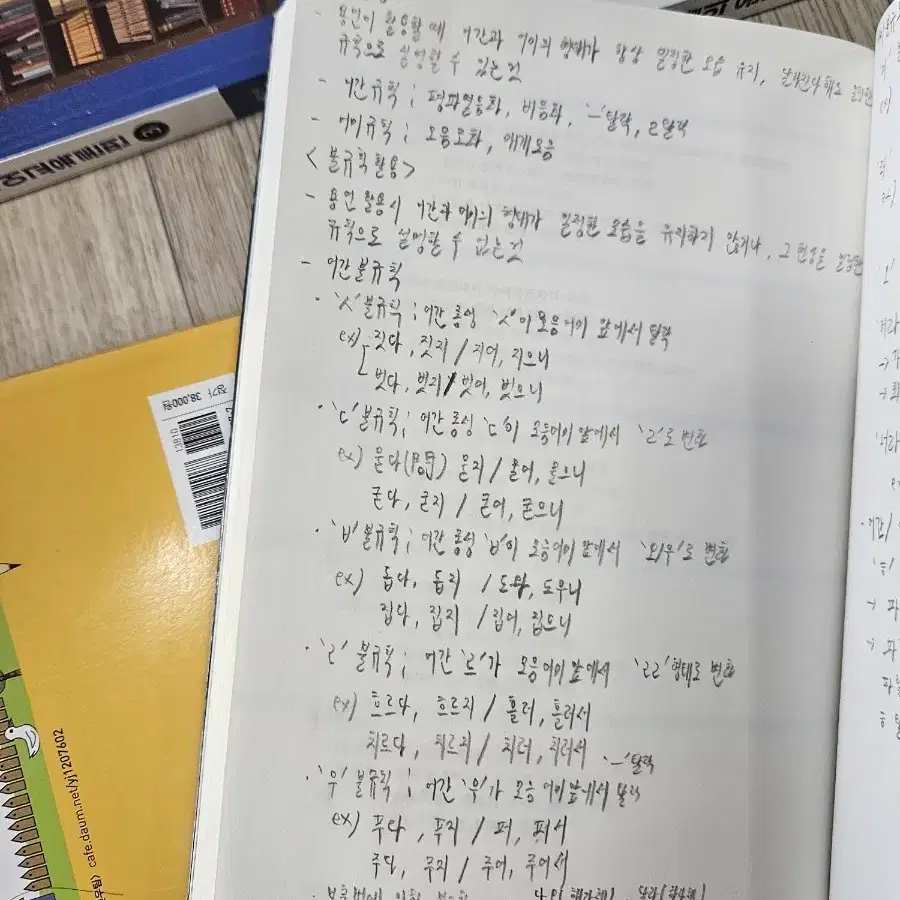 - 용언이 활용할 때 어간과 어미의 형태가 항상 일정한 모습 유지, 달라진다 해도
규칙으로 설명할 수 있는 것
- 어간규칙 ; 평파열음화, 비음화, 'ㅡ'탈락, ㄹ탈락
- 어미규칙 ; 모음조화, 매개모음
<불규칙활용>
- 용언 활용시 어간과 어미의 형태가 일정한 모습을 유지하지 않거나, 그 현상을
규칙으로 설명할 수 없는 것
- 어간 불규칙
· 'ㅅ' 불규칙 ; 어간 종성 'ㅅ'이 모음어미 앞에서 탈락
ex) 짓다, 짓지 / 지어, 지으니
벗다, 벗지 / 벗어, 벗으니
· 'ㄷ' 불규칙 ; 어간 종성 'ㄷ'이 모음어미 앞에서 'ㄹ'로 변화
ex) 묻다(問) 묻지 / 물어, 물으니
굳다, 굳지 / 굳어, 굳으니
· 'ㅂ' 불규칙 ; 어간 종성 'ㅂ'이 모음어미 앞에서 '오/우'로 변화
ex) 돕다, 돕지 / 도와, 도우니
집다, 집지 / 집어, 집으니
· '르' 불규칙 ; 어간 '르'가 모음어미 앞에서 'ㄹㄹ' 형태로 변화
ex) 흐르다, 흐르지 / 흘러, 흘러서
치르다, 치르지 / 치러, 치러서 'ㅡ'탈락
· '우' 불규칙 ; 어간 '우'가 모음 어미앞에서 탈락
ex) 푸다, 푸지 / 퍼, 퍼서
주다, 주지 / 주어, 주어서
정가 38,000원
13810
cafe.daum.net/yj1207602